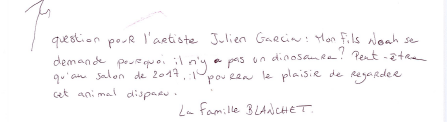 question pour l'artiste Julien Garcin: Mon fils Noah se
demande pourquoi il n'y a pas un dinosaure? Peut-être
qu'au salon de 2017, il pourra le plaisir de regarder
cet animal disparu.
La famille BLANCHET.